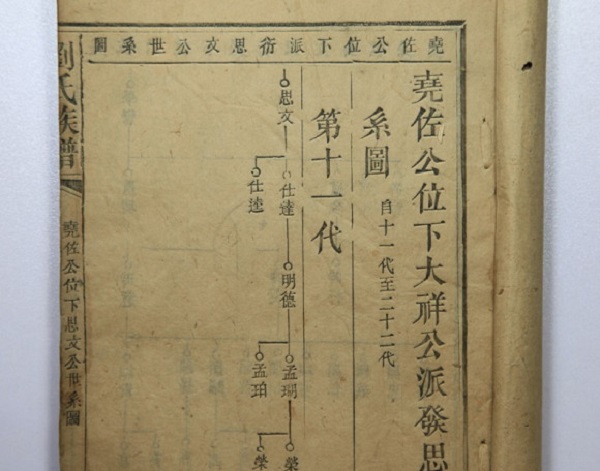 堯佐公位下派衍思文公世系圖
堯佐公位下大祥公派發思
系圖 自十一代至二十二代
第十一代
思文
仕達
仕逵
明德
孟瑚
孟珀
榮
榮
劉氏族譜
堯佐公位下思文公世系圖